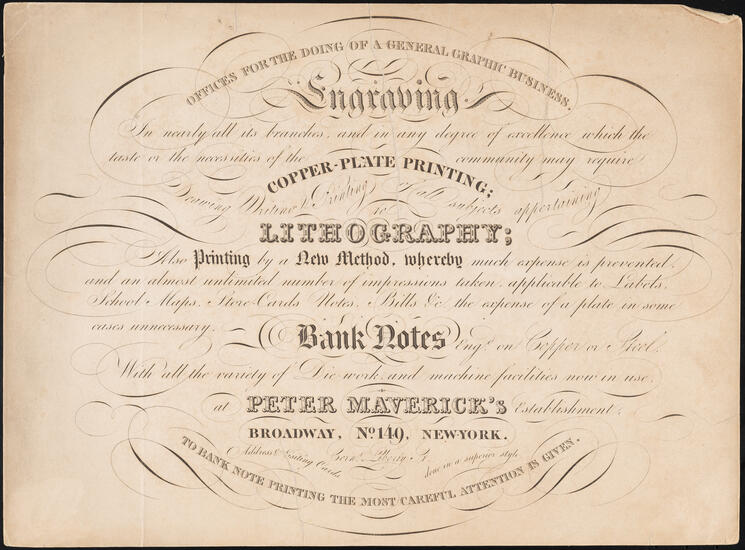 OFFICES FOR THE DOING OF A GENERAL GRAPHIC BUSINESS.
Engraving.
In nearly all its branches, and in any degree of excellence which the
taste or the necessities of the community may require
COPPER-PLATE PRINTING;
Drawing Writing & Printing of all subjects appertaining
to
LITHOGRAPHY;
Also Printing by a New Method, whereby much expense is prevented,
and an almost unlimited number of impressions taken, applicable to Labels,
School Maps, Store-Cards Notes, Bills &c the expense of a plate in some
cases unnecessary.
Bank Notes Engd. on Copper or Steel.
With all the variety of Die work and machine facilities now in use,
at PETER MAVERICK's Establishment,
BROADWAY, No. 149, NEW-YORK.
Address & Visiting Cards Corn. Liberty St. done in a superior style
TO BANK NOTE PRINTING THE MOST CAREFUL ATTENTION IS GIVEN.